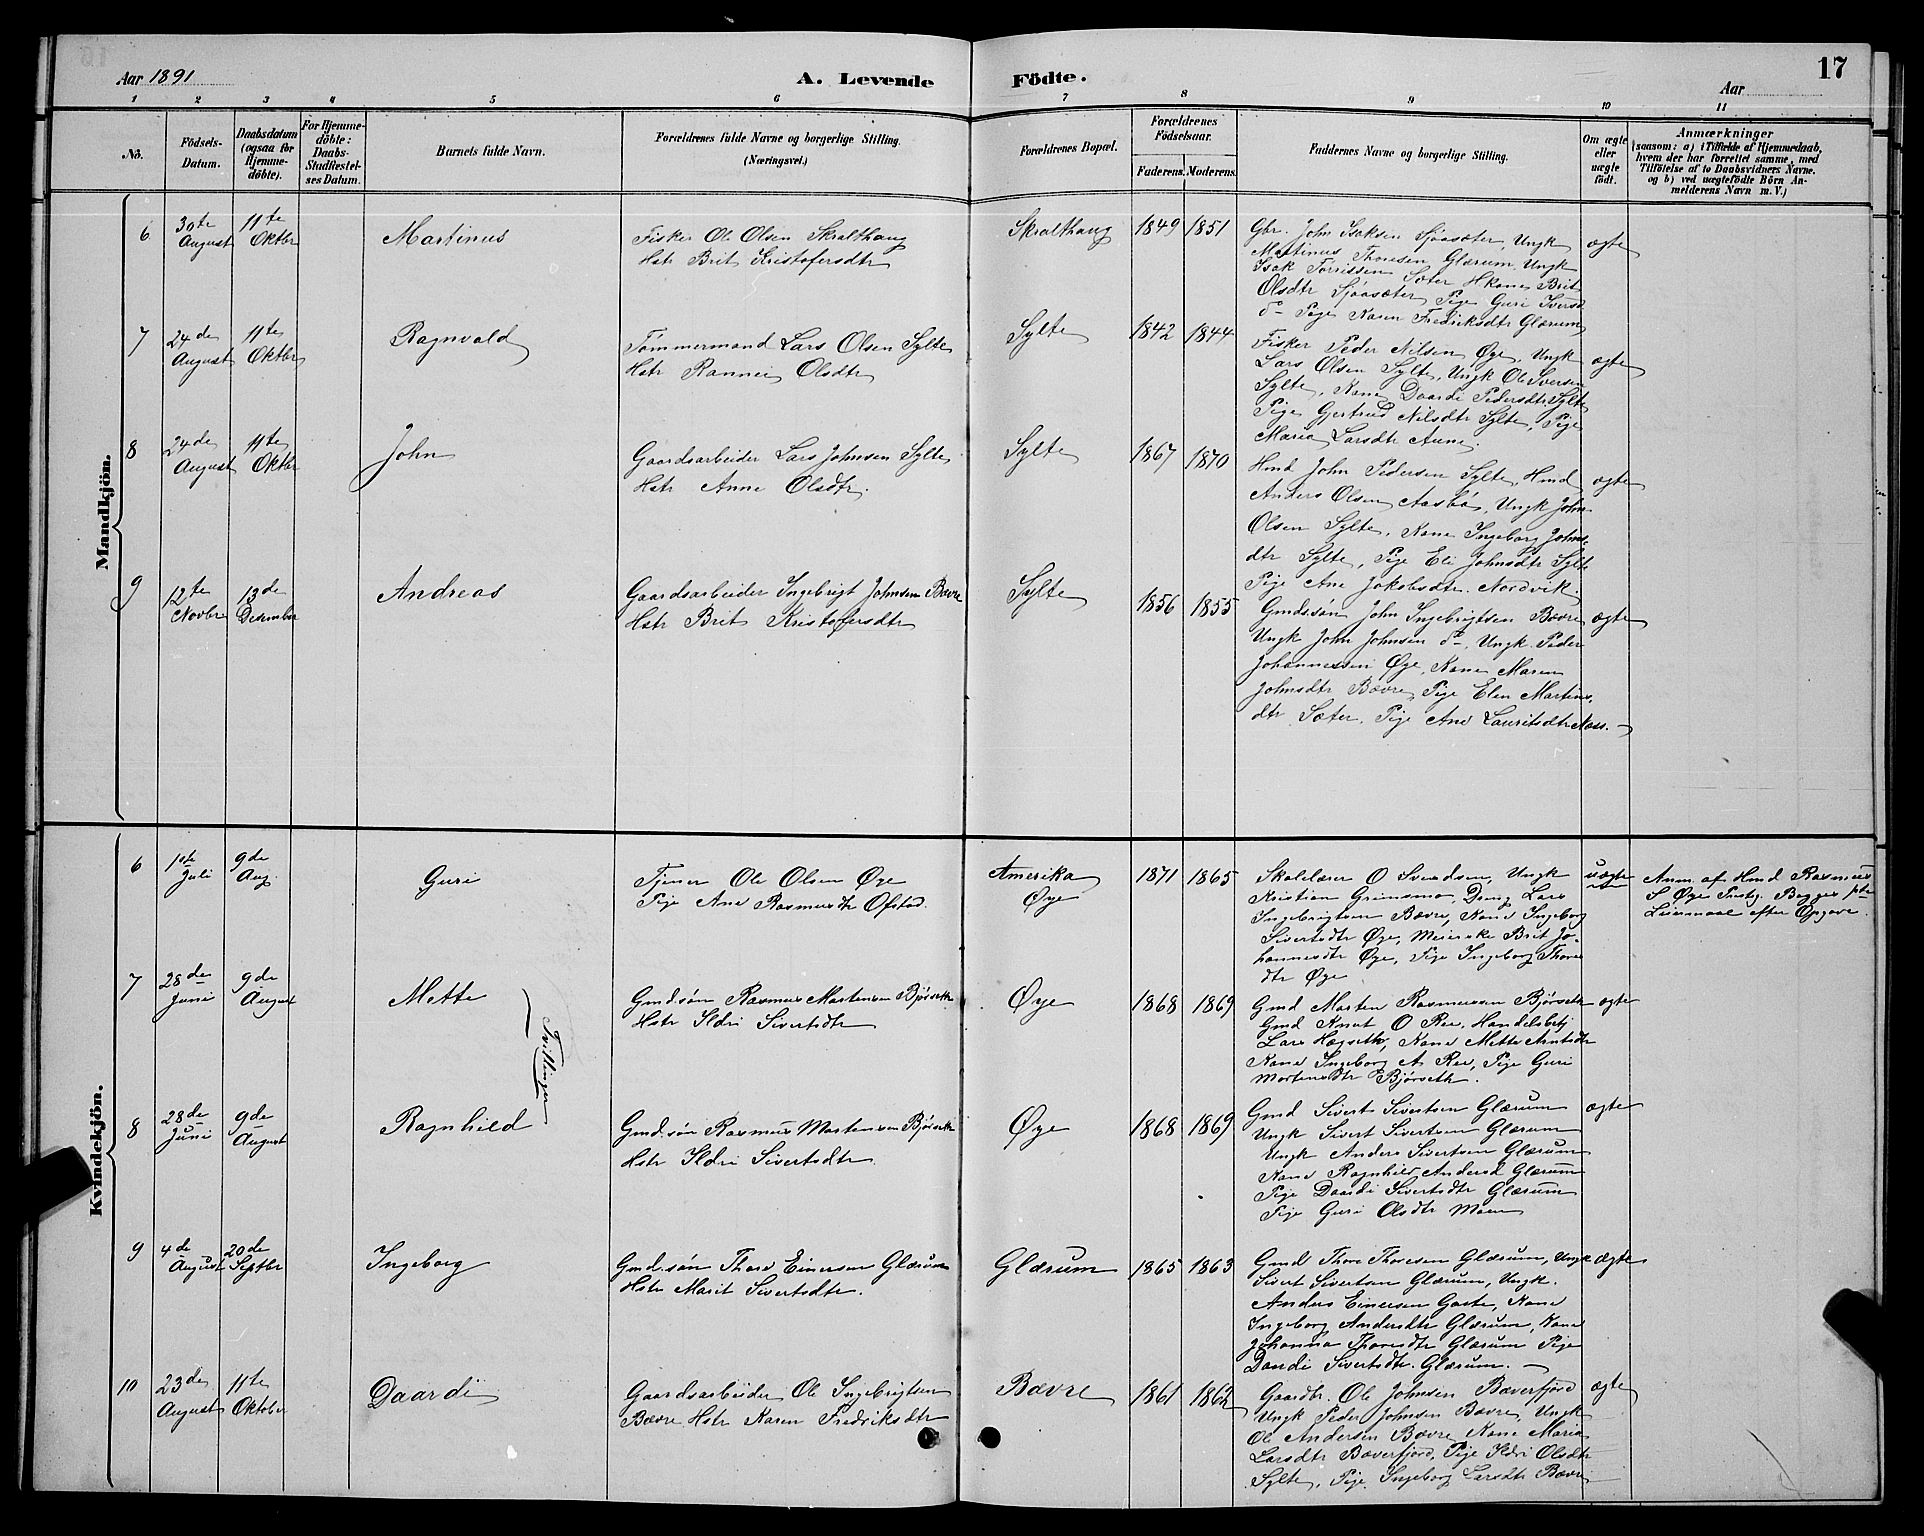 Aar 1891
A. Levende
Födte.
Aar
17
1 2 3 4 5 6 7 8 9 10 11
No.
Födsels-
Datum.
Daabsdatum
(ogsaa for
Hjemme-
döbte).
For Hjemme-
döbte:
Daabs-
Stadfæstel-
ses Datum.
Barnets fulde Navn.
Forældrenes fulde Navne og borgerlige Stilling.
(Næringsvei.)
Forældrenes Bopæl.
Forældrenes
Födselsaar.
Faderens. Moderens.
Faddernes Navne og borgerlige Stilling.
Om ægte
eller
uægte
födt.
Anmærkninger
(saasom: a) i Tilfælde af Hjemmedaab,
hvem der har forrettet samme, med
Tilföielse af to Daabsvidners Navne.
og b) ved uægtefödte Börn An-
melderens Navn m. V.)
Mandkjön.
6
30te
August
11te
Oktbr
Martinus
Fisker Ole Olsen Skralthaug
Hstr Brit Kristofersdtr
Skralthaug
1849 1851
Gbr. John Isaksen Sjøasæter, Ungk
Martinus Thoresen Glærum, Ungk
Isak Torrissen Sæter Hkone Brit
Olsdtr Sjøasæter, Pige Guri Iversd
do Pige Karen Fredriksdtr Glærum
ægte
7
24de
August
11te
Oktbr
Ragnvald
Tømmermand Lars Olsen Sylte
Hstr Rannei Olsdtr
Sylte
1842 1844
Fisker Peder Nilsen Øye, Ungk
Lars Olsen Sylte, Ungk Ole Iversen
Sylte, Kone Daardi Pedersdtr Sylte
Pige Gjertrud Nilsdtr Sylte, Pige
Maria Larsdtr Aune.
ægte
8
24de
August
11te
Oktbr
John
Gaardsarbeider Lars Johnsen Sylte
Hstr Anne Olsdtr.
Sylte
1867 1870
Hmd John Pedersen Sylte, Hmd
Anders Olsen Aasbø, Ungk John
Olsen Sylte, Kone Ingeborg Johns-
dtr Sylte, Pige Eli Johnsdtr Sylte
Pige Ane Jakobsdtr. Nordvik.
ægte
9
12te
Novbr
13de
Desember
Andreas
Gaardsarbeider Ingebrigt Johnsen Bævre
Hstr Brit Kristofersdtr
Sylte
1856 1855
Gmds.søn John Ingebrigtsen Bævre
Ungk John Johnsen do, Ungk. Peder
Johannessen Øye, Kone Maren
Johnsdtr Bævre, Pige Elen Martins-
dtr Sæter, Pige Ane Lauritsdtr Næss.
ægte
Kvindekjön.
6
1ste
Juli
9de
Aug.
Guri
Tjener Ole Olsen Øye
Pige Ane Rasmusdtr Ofstad.
Amerika
Øye
1871 1865
Skolelærer O Svendsen, Ungk
Kristian Grimsmo, Dreng Lars
Ingebrigtsen Bævre, Kone Ingeborg
Sivertsdtr Øye, Meierske Brit Jo-
hannesdtr Øye, Pige Ingeborg Thores
dtr Øye
uægte
Anm. af Hmd Rasmus
S Øye
Leiermaal efter Opgave.
7
28de
Juni
9de
August
Mette
Gmd.søn Rasmus Mortensen Bjørseth
Hstr Ildri Sivertsdtr
Øye
1868 1869
Gmd Morten Rasmussen Bjørseth
Gmd Knut O Ree, Handelsbetj
Lars Hægseth, Kone Mette Arntsdtr
Kone Ingeborg A Ree, Pige Guri
Mortensdtr Bjørseth.
ægte
Tvillinger
8
28de
Juni
9de
August
Ragnhild
Gmd.søn Rasmus Mortensen Bjørseth
Hstr Ildri Sivertsdtr
Øye
1868 1869
Gmd Sivert Sivertsen Glærum
Ungk Sivert Sivertsen Glærum
Ungk Anders Sivertsen Glærum
Kone Ragnhild Andersd Glærum
Pige Daardi Sivertsdtr Glærum
Pige Guri Olsdtr Moen
ægte
9
4de
August
20de
Septbr
Ingeborg
Gmd.søn Thore Einersen Glærum
Hstr Marit Sivertsdtr.
Glærum
1865 1863
Gmd Thore Thoresen Glærum, Ungk
Sivert Sivertsen Glærum, Ungk.
Anders Einersen Gaste, Kone
Ingeborg Andersdtr Glærum, Kone
Johanna Thoresdtr Glærum Pige
Daardi Sivertsdtr. Glærum.
ægte
10
23de
August
11te
Oktober
Daardi
Gaardsarbeider Ole Ingebrigtsen
Bævre Hstr Karen Fredriksdtr
Bævre
1861 1862
Gaardbr. Ole Johnsen Bæverfjord
Ungk Peder Johnsen Bævre, Ungk
Ole Andersen Bævre Kone Maria
Larsdtr Bæverfjord, Pige Ildri Olsdtr
Sylte, Pige Ingeborg Larsdtr Bævre
ægte